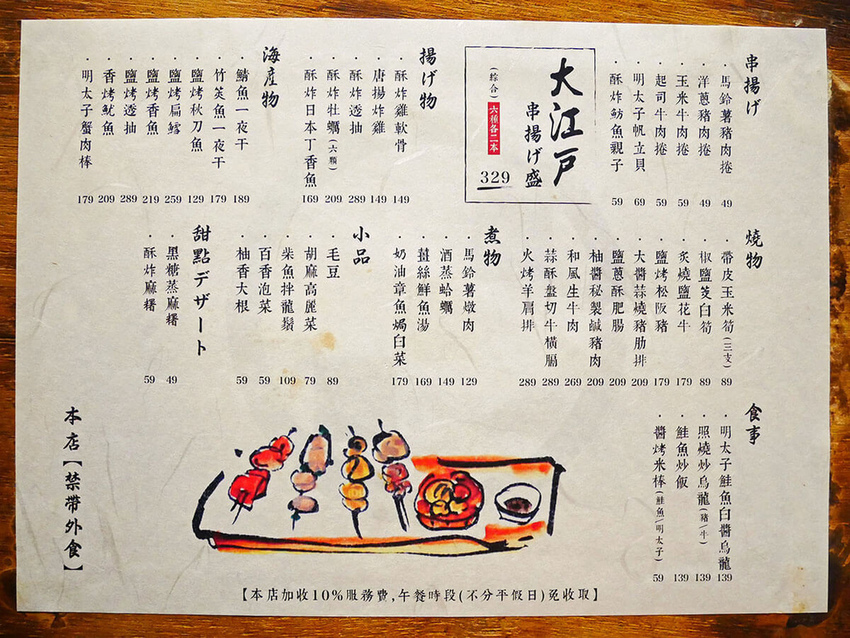 串揚げ
・馬鈴薯豬肉捲 49
・洋蔥豬肉捲 49
・玉米牛肉捲 59
・起司牛肉捲 59
・明太子帆立貝 69
・酥炸魴魚親子 59
大江戸
串揚げ盛
(綜合)六種各二本
329
揚げ物
・酥炸雞軟骨 149
・唐揚炸雞 149
・酥炸透抽 289
・酥炸牡蠣(六顆) 209
・酥炸日本丁香魚 169
海産物
・鯖魚一夜干 189
・竹筴魚一夜干 179
・鹽烤秋刀魚 129
・鹽烤扁鱈 259
・鹽烤香魚 219
・鹽烤透抽 289
・香烤魷魚 209
・明太子蟹肉棒 179
燒物
・帶皮玉米筍(三支) 89
・椒鹽茭白筍 89
・炙燒鹽花牛 179
・鹽烤松阪豬 179
・大醬蒜燒豬肋排 209
・鹽蔥酥肥腸 209
・柚醬秘製鹹豬肉 209
・和風生牛肉 269
・蒜酥盤切牛橫膈 289
・火烤羊肩排 289
煮物
・馬鈴薯燉肉 129
・酒蒸蛤蠣 149
・薑絲鮮魚湯 169
・奶油章魚焗白菜 179
小品
・毛豆 89
・胡麻高麗菜 79
・柴魚拌龍鬚 109
・百香泡菜 59
・柚香大根 59
甜點デザート
・黑糖蒸麻糬 49
・酥炸麻糬 59
食事
・明太子鮭魚白醬烏龍 139
・照燒炒烏龍(豬/牛) 139
・鮭魚炒飯 139
・醬烤米棒(鮭魚/明太子) 59
本店【禁帶外食】
【本店加收10%服務費,午餐時段(不分平假日)免收取】